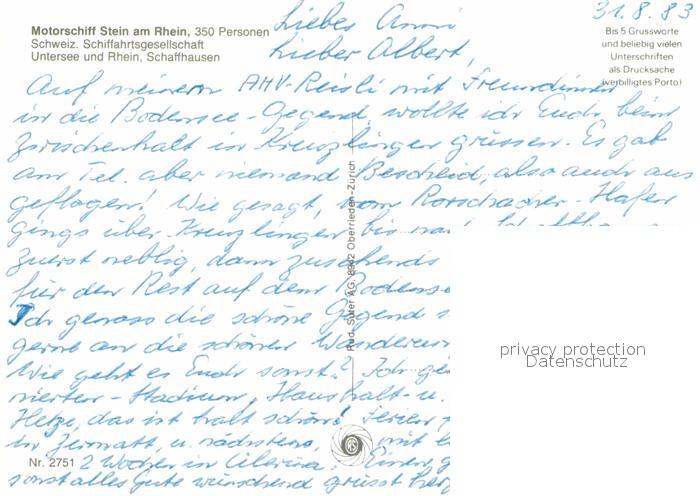 31.8.83
Liebes Anni
Lieber Albert,
Motorschiff Stein am Rhein, 350 Personen
Schweiz. Schiffahrtsgesellschaft
Untersee und Rhein, Schaffhausen
Bis 5 Grussworte
und beliebig vielen
Unterschriften
als Drucksache
(verbilligtes Porto)
Auf meinem AHV-Reisli mit Freundinnen
in die Bodensee-Gegend, wollte ich Euch beim
Zwischenhalt in Kreuzlingen grüssen. Es gab
am Tel. aber niemand Bescheid, also auch aus
geflogen! Wie gesagt, vom Rorschacher-Hafen
gings über Kreuzlingen bis nach
Zuerst neblig, dann zusehends
für den Rest auf dem Bodense
Ich genoss die schöne Gegend s
gerne an die schönen Wanderun
Wie geht es Euch sonst? Ich
nierten-Stadium, Haushalt- u.
Hetze, das ist halt schön! Ferien
in Zermatt, u. nächstens, mit
2 Wochen in Celerina.
sonst alles Gute wünschend grüsst herz
Nr. 2751
Rud. Suter AG, 8942 Oberrieden-Zürich
RS
privacy protection
Datenschutz